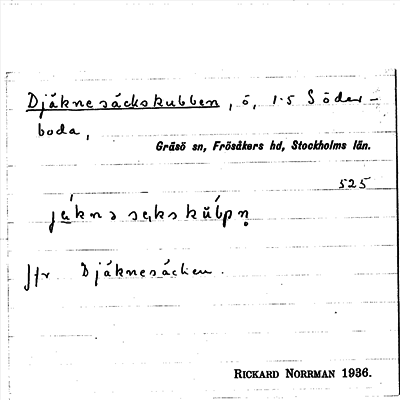 Djäknesäckskubben, ö, 1-5 Söder-
boda,
Gräsö sn, Frösåkers hd, Stockholms län.
525
Jfr Djäknesäcken.
RICKARD NORRMAN 1936.